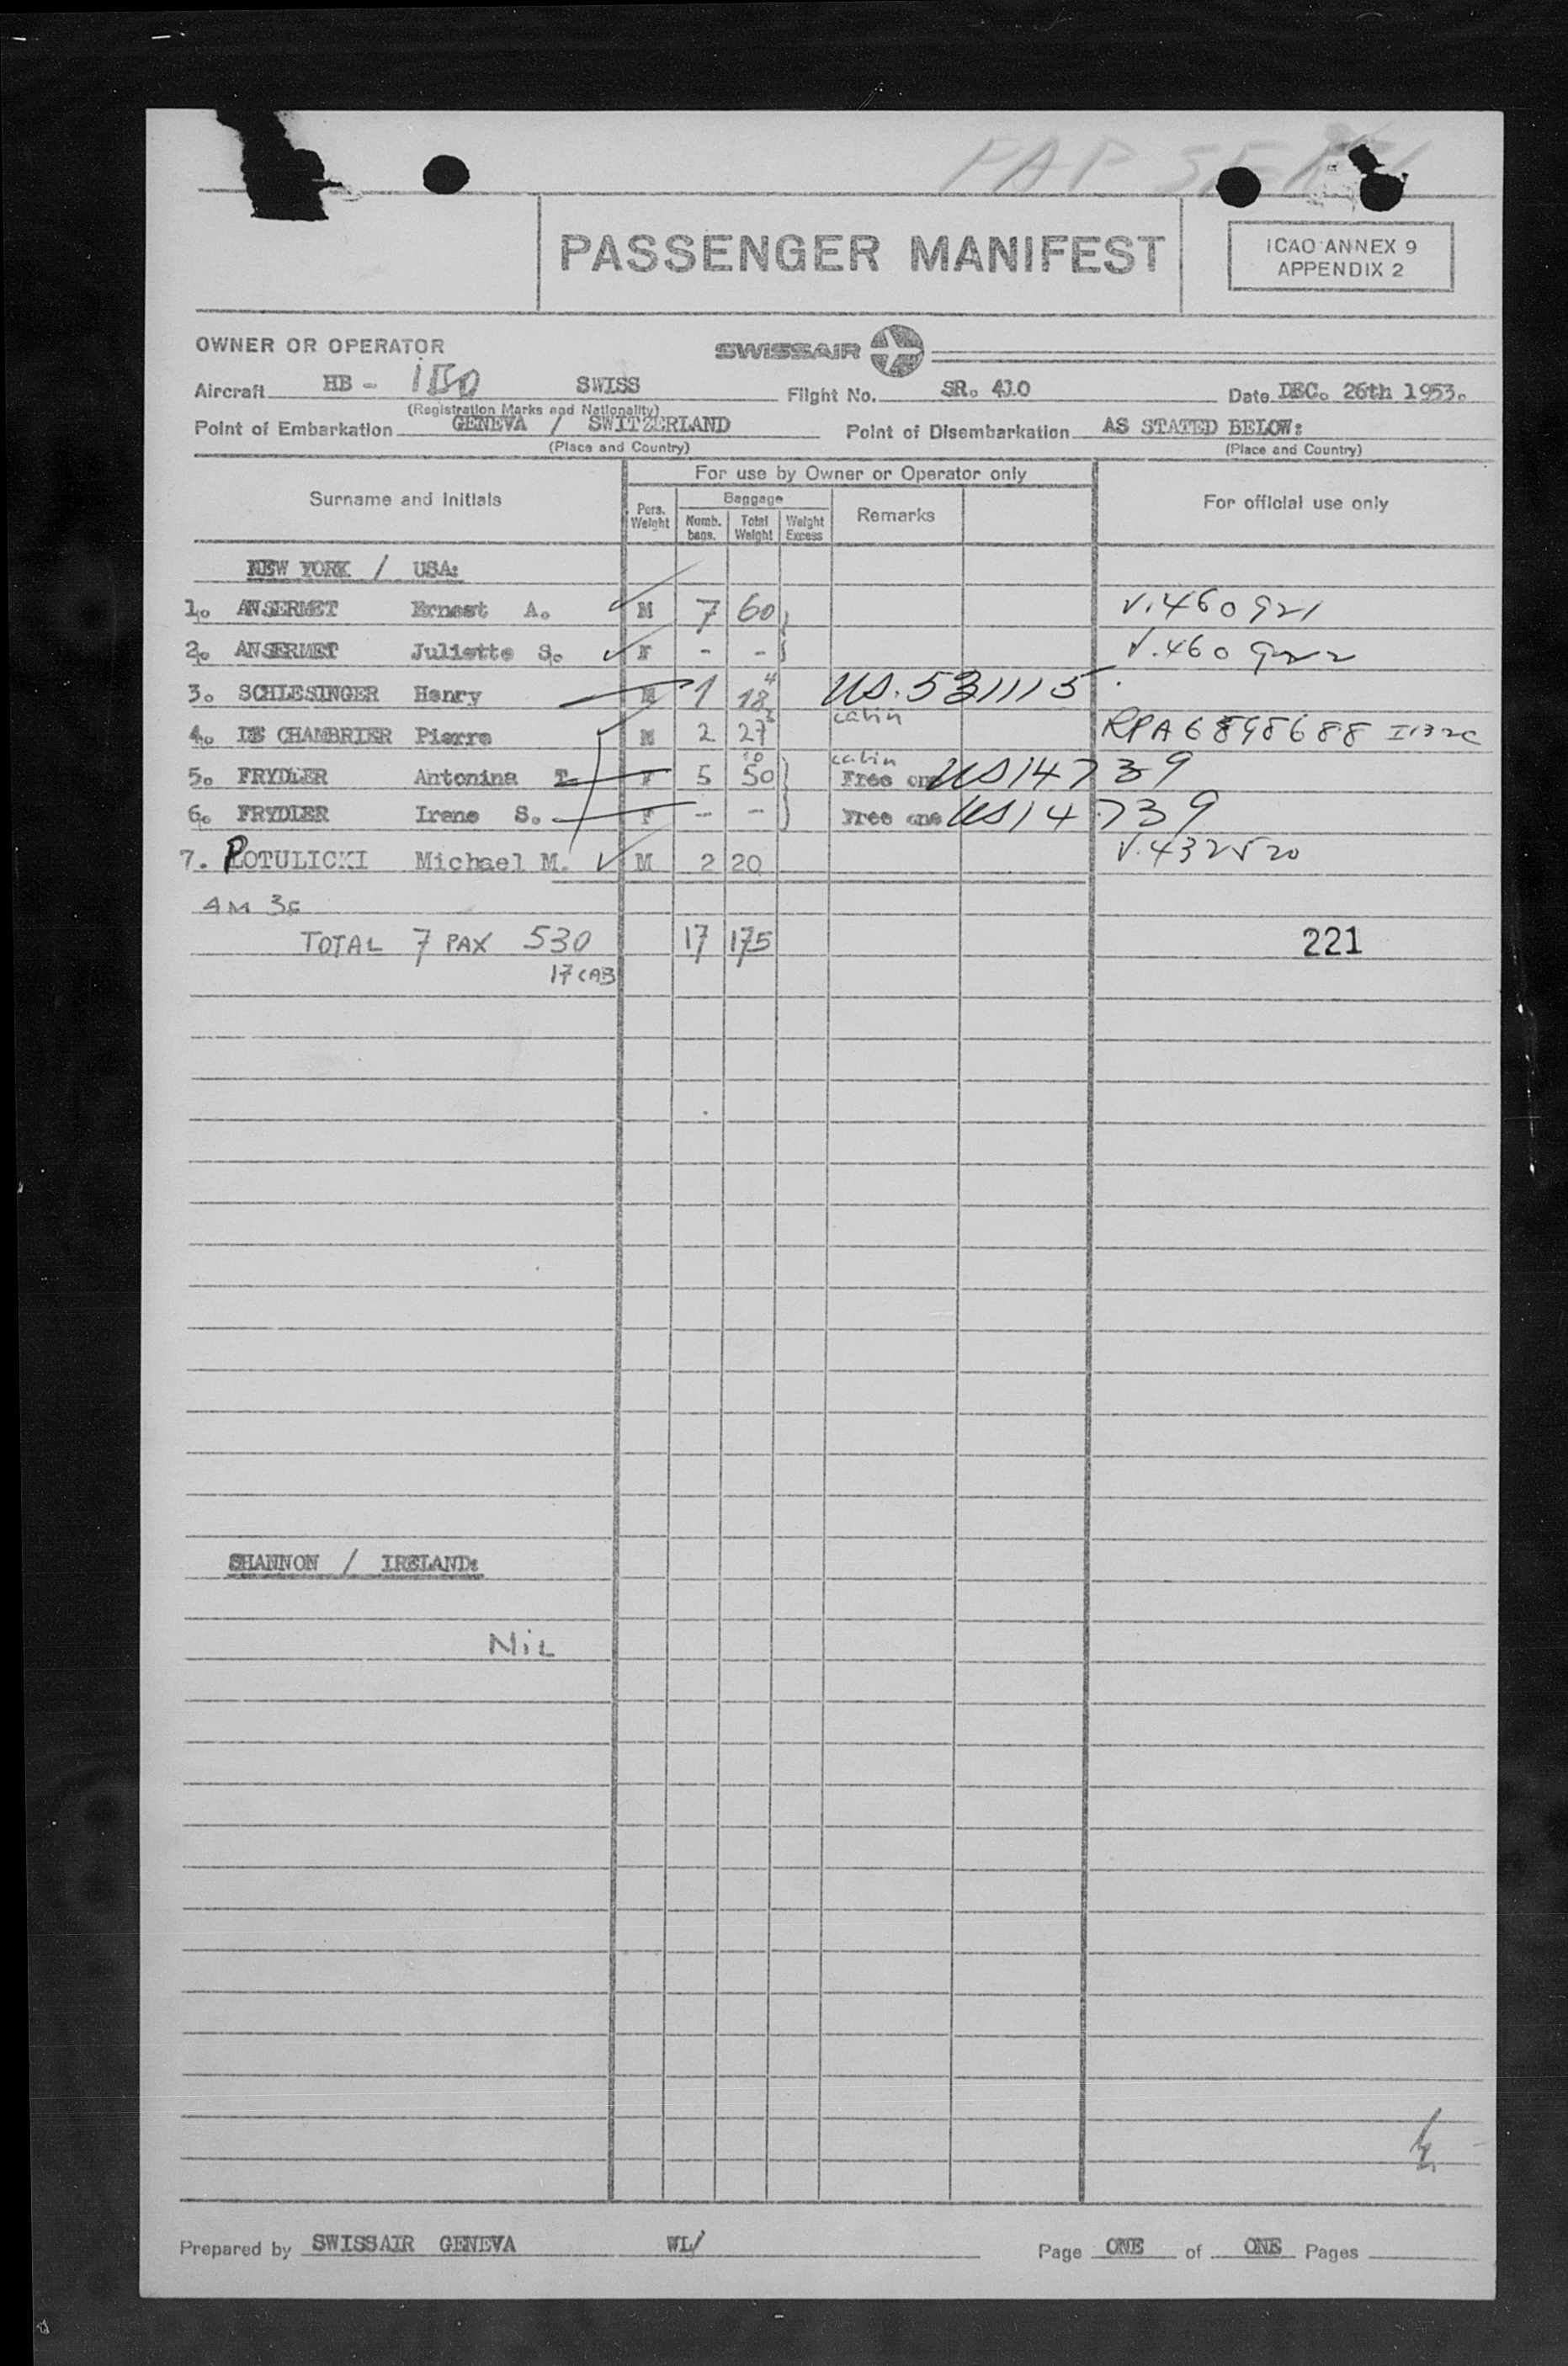 PAP
PASSENGER MANIFEST
ICAO ANNEX 9
APPENDIX 2
OWNER OR OPERATOR SWISSAIR
Aircraft HB - SWISS Flight No. SR. 410 Date DEC. 26th 1953.
(Registration Marks and Nationality)
Point of Embarkation GENEVA / SWITZERLAND Point of Disembarkation AS STATED BELOW:
(Place and Country) (Place and Country)
For use by Owner or Operator only
Surname and Initials Pers. Weight Baggage Numb. bags. Total Weight Weight Excess Remarks For official use only
NEW YORK / USA:
1. ANSERMET Ernest A. M 7 60 V.460921
2. ANSERMET Juliette S. F - - V.460922
3. SCHLESINGER Henry M 1 18 4 US.531115
4. DE CHAMBRIER Pierre M 2 27 cabin RPA 6898688
5. FRYDLER Antonina T. F 5 50 10 cabin Free one US14739
6. FRYDLER Irene S. F - - Free one US14739
7. POTULICKI Michael M. M 2 20 V.432520
4M 3F
TOTAL 7 PAX 530 17 175 221
17 CAB
SHANNON / IRELAND:
NiL
Prepared by SWISSAIR GENEVA WL/ Page ONE of ONE Pages